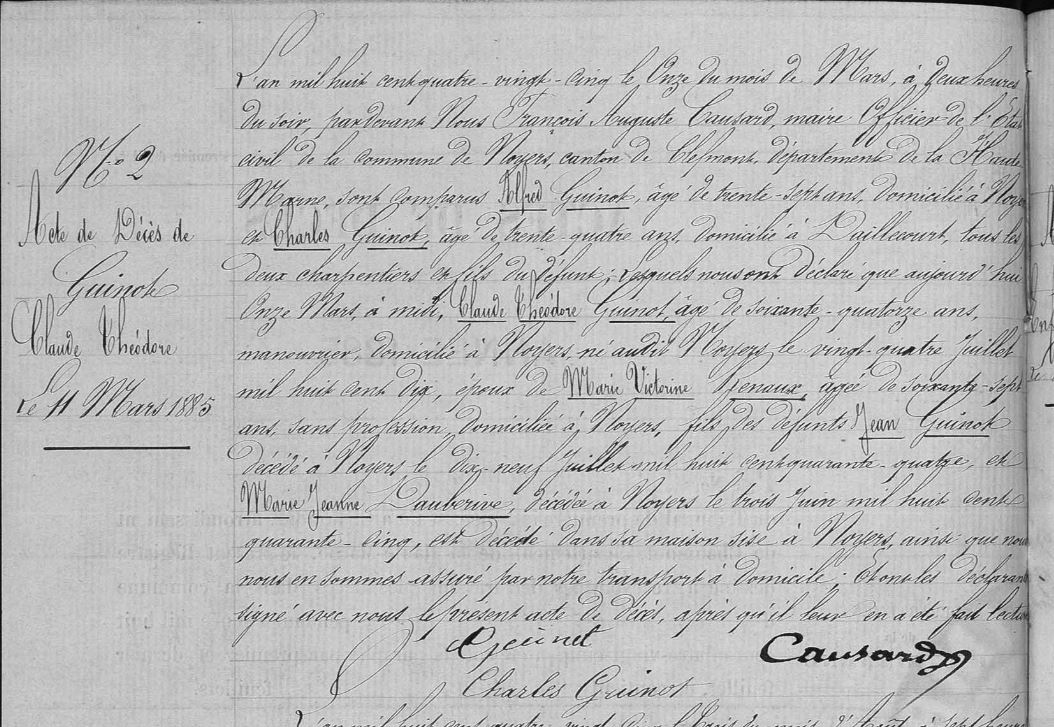 N.o 2
Acte de Décès de
Guinot
Claude Théodore
Le 11 Mars 1885
L'an mil huit cent quatre-vingt-cinq le Onze du mois de Mars, à deux heures
du soir, pardevant Nous François Auguste Causard, maire Officier de l'État
civil de la commune de Noyers, canton de Clefmont, département de la Haute
Marne, sont comparus Alfred Guinot, âgé de trente-sept ans, domicilié à Noyers
et Charles Guinot, âgé de trente-quatre ans, domicilié à Daillecourt, tous les
deux charpentiers et fils du défunt; lesquels nous ont déclaré que aujourd'hui
Onze Mars, à midi, Claude Théodore Guinot, âgé de soixante-quatorze ans,
manouvrier, domicilié à Noyers, né audit Noyers le vingt-quatre Juillet
mil huit cent dix, époux de Marie Victorine Renaux, âgée de soixante-sept
ans, sans profession, domiciliée à Noyers, fils des défunts Jean Guinot
décédé à Noyers le dix-neuf Juillet mil huit cent quarante-quatre, et
Marie Jeanne Dauberive, décédée à Noyers le trois Juin mil huit cent
quarante-cinq, est décédé dans sa maison sise à Noyers, ainsi que nous
nous en sommes assuré par notre transport à domicile; Et ont les déclarants
signé avec nous le présent acte de décès, après qu'il leur en a été fait lecture
Guinot
Causard
Charles Guinot